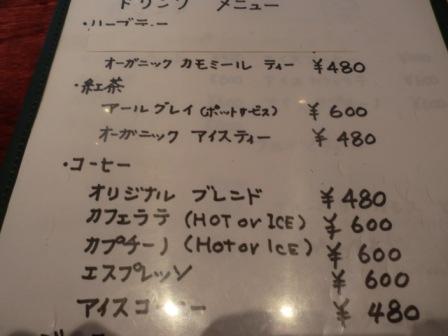 ドリンク メニュー
・ハーブティー
オーガニック カモミール ティー ¥480
・紅茶
アールグレイ(ポットサービス) ¥600
オーガニック アイスティー ¥480
・コーヒー
オリジナル ブレンド ¥480
カフェラテ (HOT or ICE) ¥600
カプチーノ (HOT or ICE) ¥600
エスプレッソ ¥600
アイスコーヒー ¥480